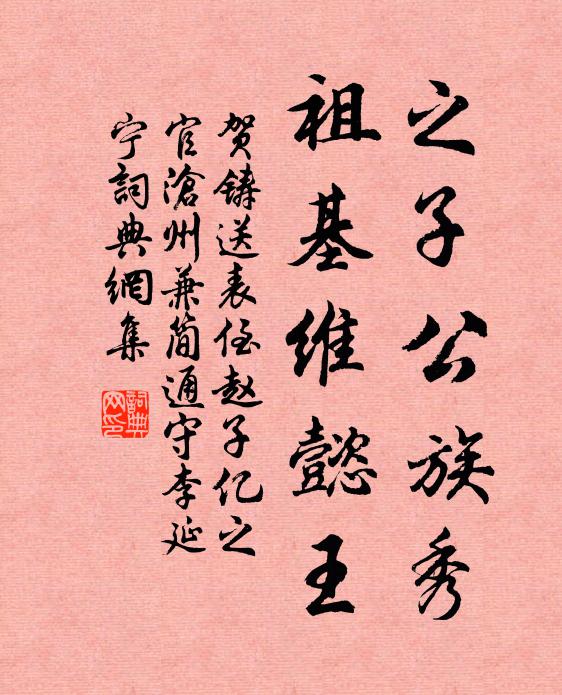 之子公族秀
祖基维懿王
贺鑄送表侄赵子亿之
官滄州兼简通守李延
宁詞典網集
詞典
网印